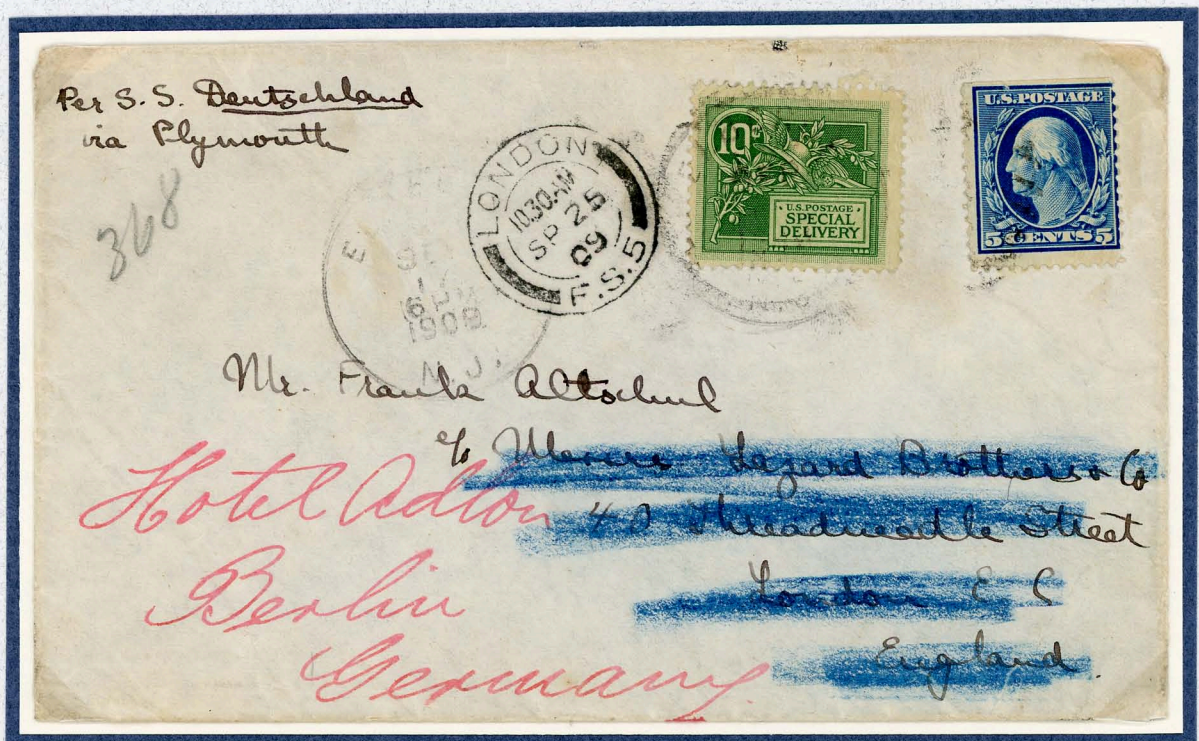 Per S. S. Deutschland
via Plymouth
368
LONDON
10.30 AM
SP 25
09
F.S.5
E
17
6 P
1909
N.J.
10
U.S. POSTAGE
SPECIAL
DELIVERY
U.S. POSTAGE
5 CENTS 5
Mr. Frank Altschul
c/o Messrs Lazard Brothers & Co
40 Threadneedle Street
London E C
England
Hotel Adlon
Berlin
Germany